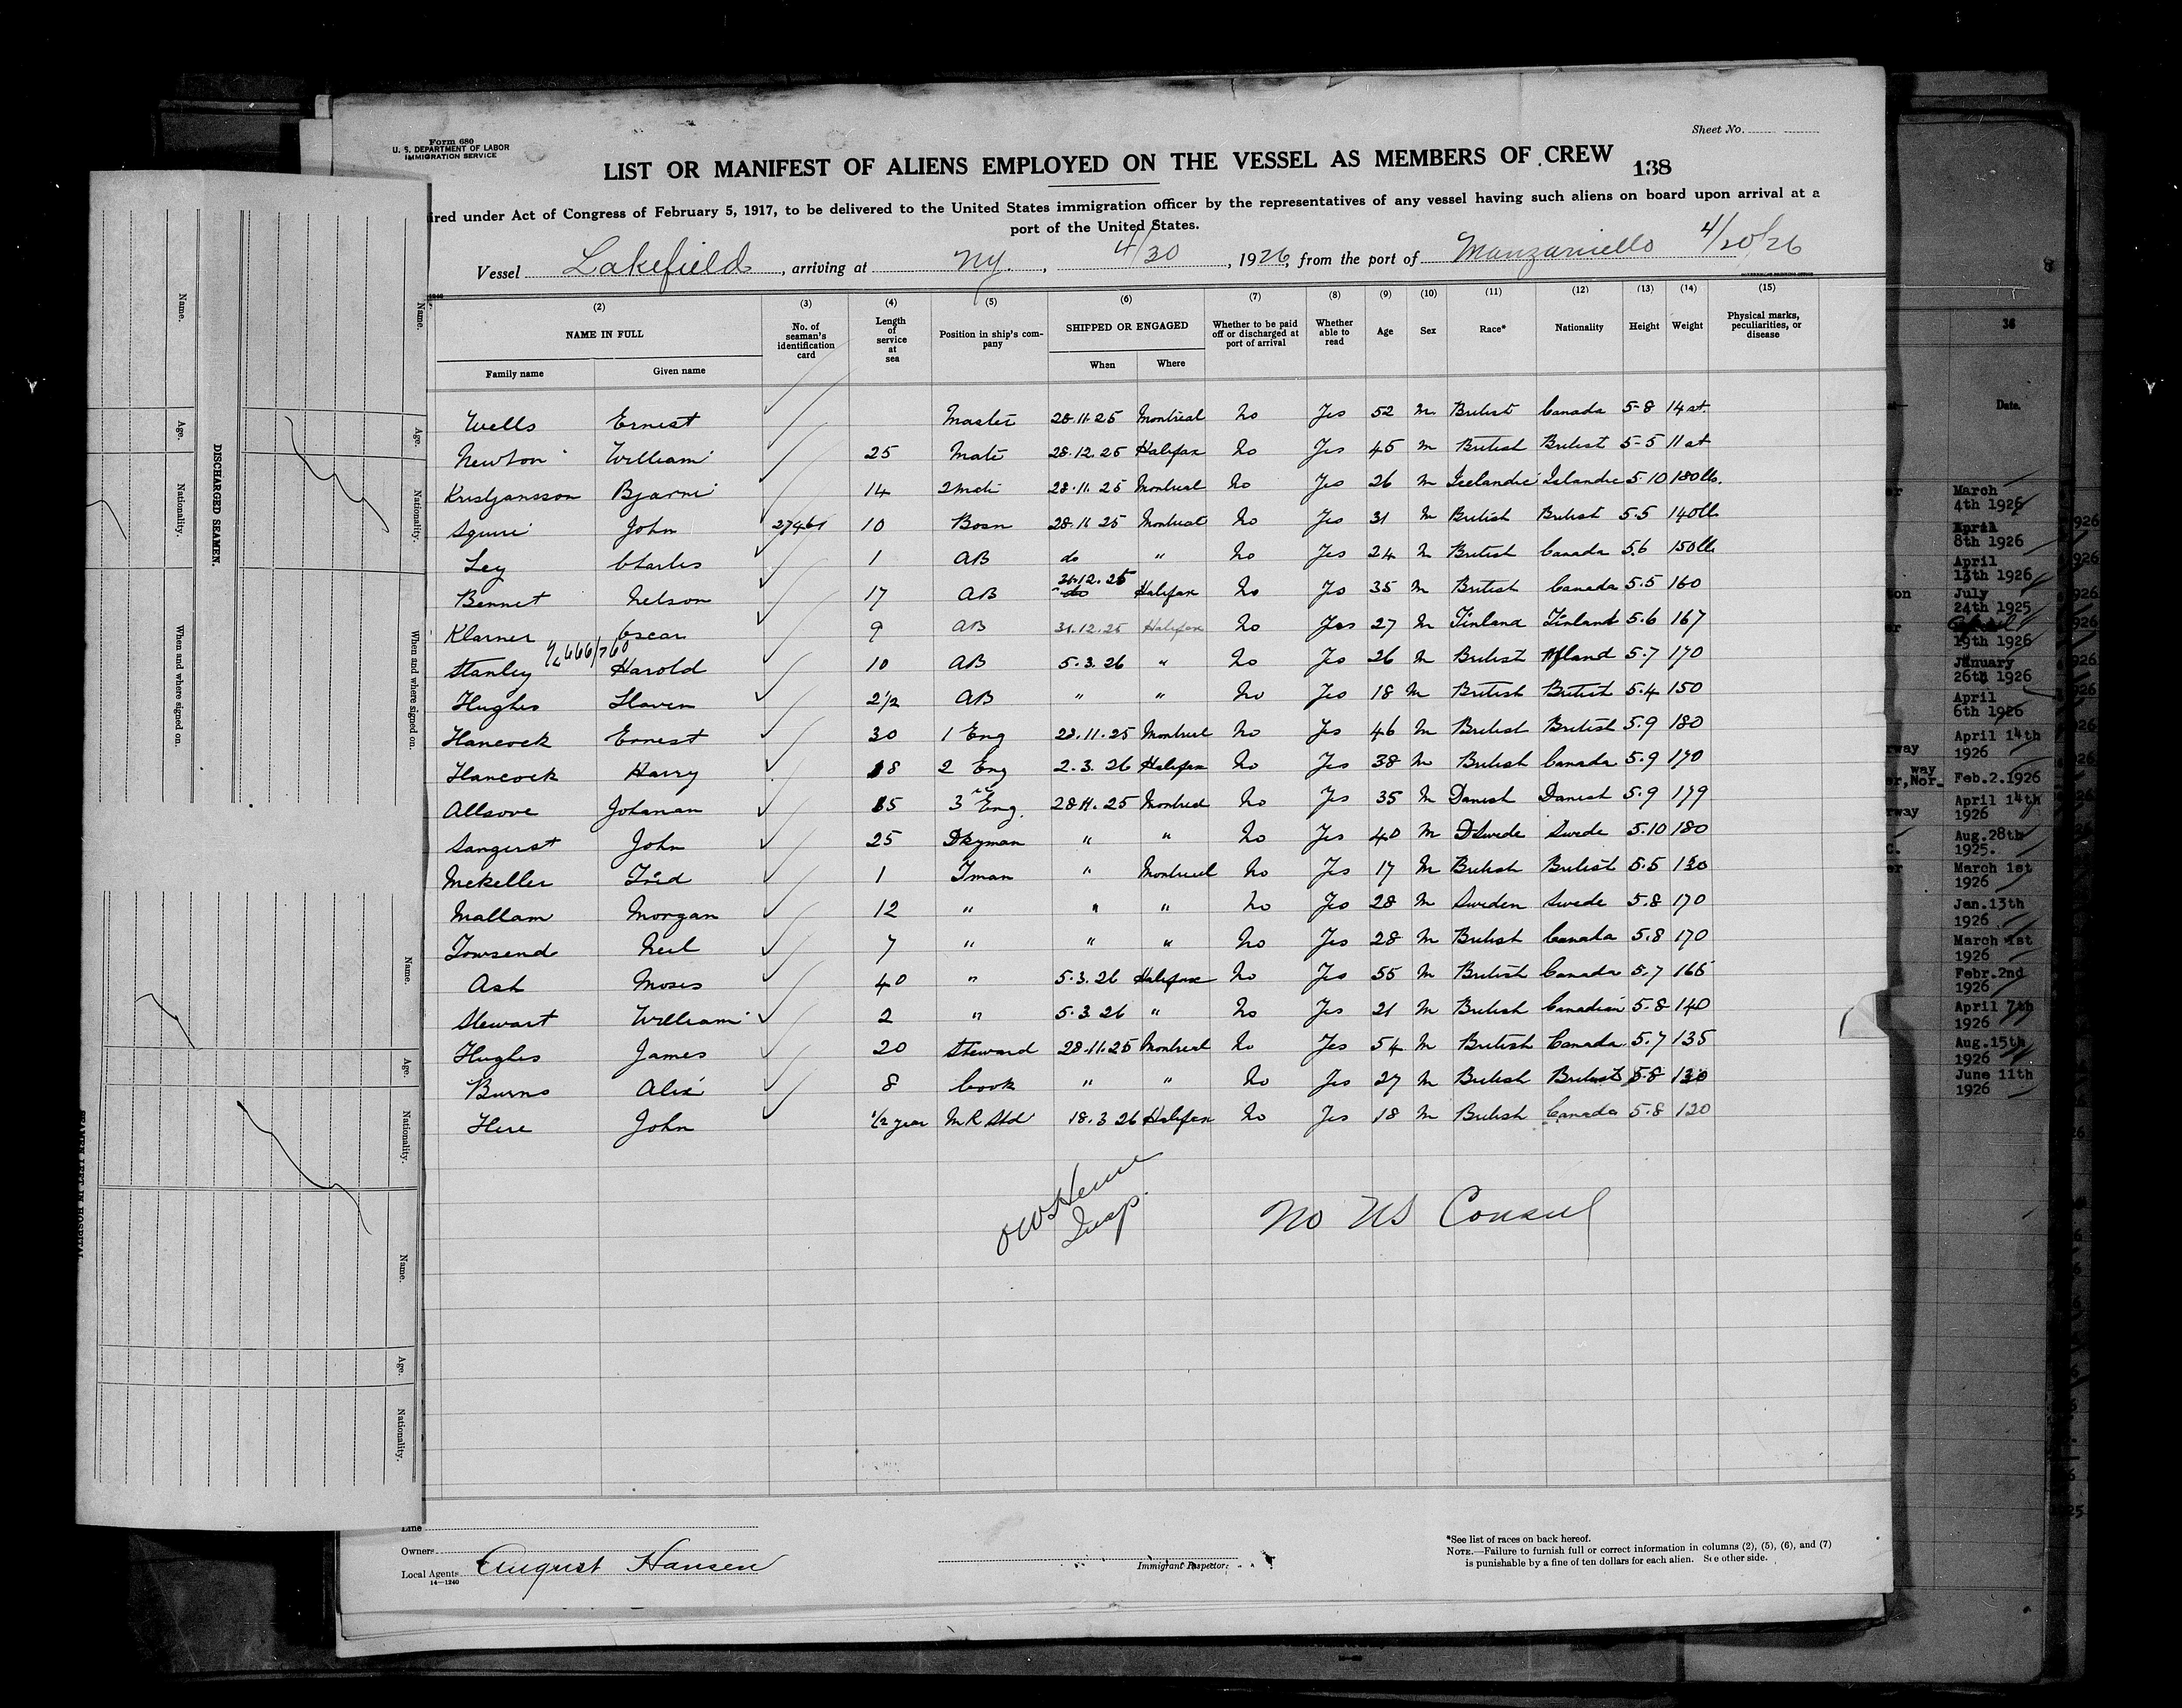 Sheet No.
Form 680
U. S. DEPARTMENT OF LABOR
IMMIGRATION SERVICE
LIST OR MANIFEST OF ALIENS EMPLOYED ON THE VESSEL AS MEMBERS OF CREW 138
ired under Act of Congress of February 5, 1917, to be delivered to the United States immigration officer by the representatives of any vessel having such aliens on board upon arrival at a
port of the United States.
Vessel Lakefield, arriving at Ny., 4/30, 1926, from the port of Manzaniello 4/20/26
(2) (3) (4) (5) (6) (7) (8) (9) (10) (11) (12) (13) (14) (15)
NAME IN FULL No. of seaman's identification card Length of service at sea Position in ship's company SHIPPED OR ENGAGED Whether to be paid off or discharged at port of arrival Whether able to read Age Sex Race* Nationality Height Weight Physical marks, peculiarities, or disease
Family name Given name When Where
Wells Ernest Master 28.11.25 Montreal No Yes 52 M British Canada 5-8 14 st.
Newton William 25 Mate 28.12.25 Halifax No Yes 45 M British British 5-5 11 st
Kristjansson Bjarni 14 2 Mate 28.11.25 Montreal No Yes 26 M Icelandic Islandic 5-10 180 lbs.
Squire John 27461 10 Bosn 28.11.25 Montreal No Yes 31 M British British 5.5 140 lb
Ley Charles 1 AB do " No Yes 24 M British Canada 5.6 150 lb
Bennet Nelson 17 AB 31.12.25 Halifax No Yes 35 M British Canada 5.5 160
Klarner Oscar 9 AB 31.12.25 Halifax No Yes 27 M Finland Finland 5.6 167
Stanley Harold 10 AB 5.3.26 " No Yes 26 M British Nfland 5.7 170
Hughes 2½ AB " " No Yes 18 M British British 5.4 150
Hancock Ernest 30 1 Eng 28.11.25 Montreal No Yes 46 M British British 5.9 180
Hancock Harry 18 2 Eng 2.3.26 Halifax No Yes 38 M British Canada 5.9 170
Allsove Johanan 15 3 Eng. 28.11.25 Montreal No Yes 35 M Danish Danish 5.9 179
Sangerst John 25 Dkyman " " No Yes 40 M Swede Swede 5.10 180
McKeller Fred 1 Fman " Montreal No Yes 17 M British British 5.5 130
Mallam Morgan 12 " " " No Yes 28 M Sweden Swede 5.8 170
Towsend Neil 7 " " " No Yes 28 M British Canada 5.8 170
Ash Moses 40 " 5.3.26 Halifax No Yes 55 M British Canada 5.7 165
Stewart William 2 " 5.3.26 " No Yes 21 M British Canadian 5.8 140
Hughes James 20 Steward 28.11.25 Montreal No Yes 54 M British Canada 5.7 135
Burns Alix 8 Cook " " No Yes 27 M British British 5.8 130
Hire John ½ year M R Std 18.3.26 Halifax No Yes 18 M British Canada 5.8 120
Insp.
No US Consul
Line
Owners
Local Agents August Hansen
14—1240
Immigrant Inspector.
*See list of races on back hereof.
NOTE.—Failure to furnish full or correct information in columns (2), (5), (6), and (7)
is punishable by a fine of ten dollars for each alien. See other side.
DISCHARGED SEAMEN.
Name. Age. Nationality. When and where signed on.
Name. Age. Nationality. When and where signed on.
Name. Age. Nationality.
Name. Age. Nationality.
36
Date.
March
4th 1926
April
8th 1926
April
13th 1926
July
24th 1925
19th 1926
January
26th 1926
April
6th 1926
April 14th
1926
Feb.2.1926
April 14th
1926
Aug.28th
1925.
March 1st
1926
Jan.13th
1926
March 1st
1926
Febr.2nd
1926
April 7th
1926
Aug.15th
1926
June 11th
1926